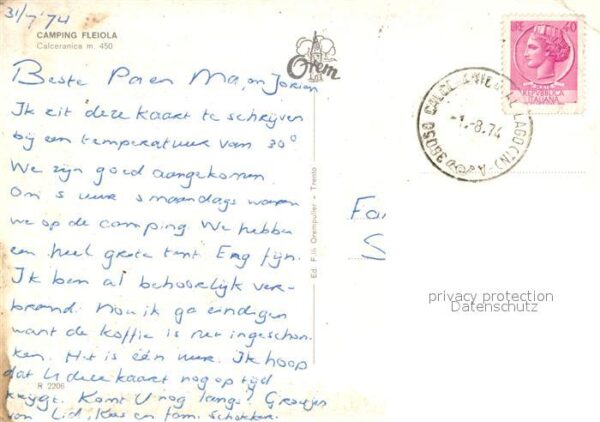 31/7 '74
CAMPING FLEIOLA
Calceranica m. 450
Beste Pa en Ma, en Jorien
Ik zit deze kaart te schrijven
bij een temperatuur van 30°
We zijn goed aangekomen
Om 5 uur s'maandags waren
we op de camping. We hebben
een heel grote tent. Erg fijn.
Ik ben al behoorlijk ver-
brand. Nou ik ga eindigen
want de koffie is net ingeschon-
ken. Het is één uur. Ik hoop
dat U deze kaart nog op tijd
krijgt. Komt U nog langs? Groetjes
van Lid, Kees en fam. Schokker.
R 2206
Orem
Ed. F.lli Orempuller - Trento
LIRE 40
REPVBBLICA
ITALIANA
38050 CALCERANICA AL LAGO (TN)
-1.-8.74
Fa
S
privacy protection
Datenschutz